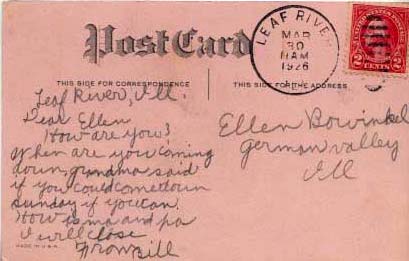 Post Card
THIS SIDE FOR CORRESPONDENCE
THIS SIDE FOR THE ADDRESS
LEAF RIVER
MAR
30
1926
UNITED STATES POSTAGE
2 CENTS 2
Leaf River, Ill.
Dear Ellen
How are you?
When are you coming
down, grandma said
if you could come down
Sunday if you can.
How is ma and pa
I will close
From Bill
Ellen Bowinkel
German valley
Ill
MADE IN U.S.A.